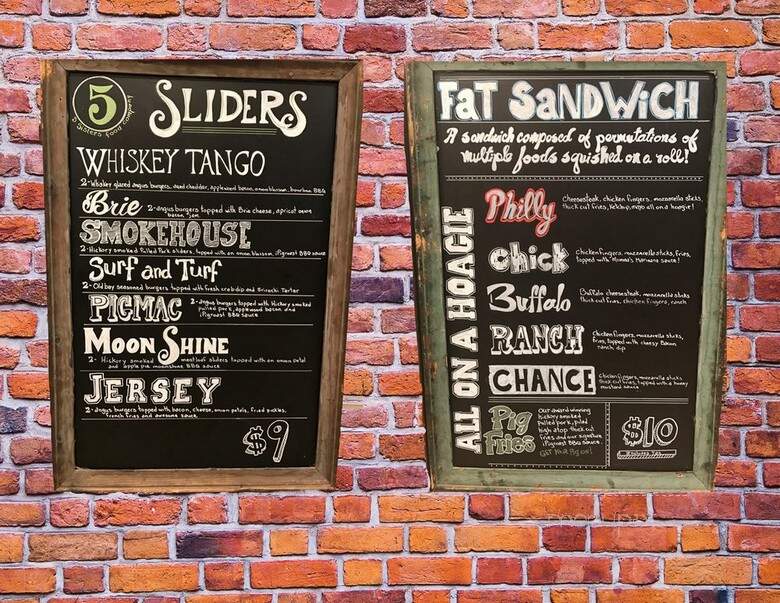 5
5 Sisters Food Company
SLIDERS
WHISKEY TANGO
2-Whiskey glazed angus burgers, aged cheddar, applewood bacon, onion blossom, bourbon BBQ
Brie
2-angus burgers topped with Brie cheese, apricot
bacon jam
SMOKEHOUSE
2-Hickory smoked Pulled Pork sliders, topped with an onion blossom, Pigwest BBQ sauce
Surf and Turf
2-Old bay seasoned burgers topped with fresh crab dip and Sriracha Tarter
PIGMAC
2-angus burgers topped with Hickory smoked
pulled pork, applewood bacon and
Pigwest BBQ sauce
MOON SHINE
2- Hickory smoked meatloaf sliders topped with an onion petal
and apple pie moonshine BBQ sauce
JERSEY
2-angus burgers topped with bacon, cheese, onion petals, fried pickles,
french fries and awesome sauce
$9
FAT SANDWiCH
A sandwich composed of permutations of
multiple foods squished on a roll!
ALL ON A HOAGIE
Philly
Cheesesteak, chicken fingers, mozzarella sticks,
thick cut fries, ketchup, mayo all on a hoagie!
Chick
Chicken fingers, mozzarella sticks, fries,
topped with Mama's Marinara sauce!
Buffalo
Buffalo cheesesteak, mozzarella sticks
thick cut fries, chicken fingers, ranch
RANCH
Chicken fingers, mozzarella sticks,
fries, topped with cheesy Bacon
ranch dip
CHANCE
Chicken fingers, mozzarella sticks
thick cut fries, topped with a honey
mustard sauce
Pig
Fries
Our award winning
hickory smoked
pulled pork, piled
high atop thick cut
fries and our signature
Pigwest BBQ sauce.
GET Your Pig on!
$10